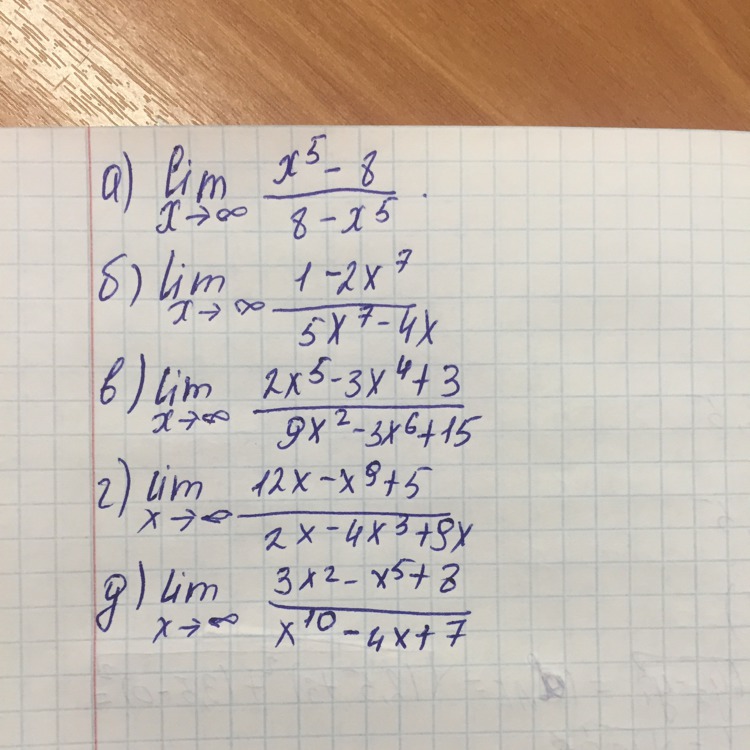 а) lim x→∞ (x⁵ - 8)/(8 - x⁵)
б) lim x→∞ (1 - 2x⁷)/(5x⁷ - 4x)
в) lim x→∞ (2x⁵ - 3x⁴ + 3)/(9x² - 3x⁶ + 15)
г) lim x→∞ (12x - x⁹ + 5)/(2x - 4x³ + 9x)
д) lim x→∞ (3x² - x⁵ + 8)/(x¹⁰ - 4x + 7)